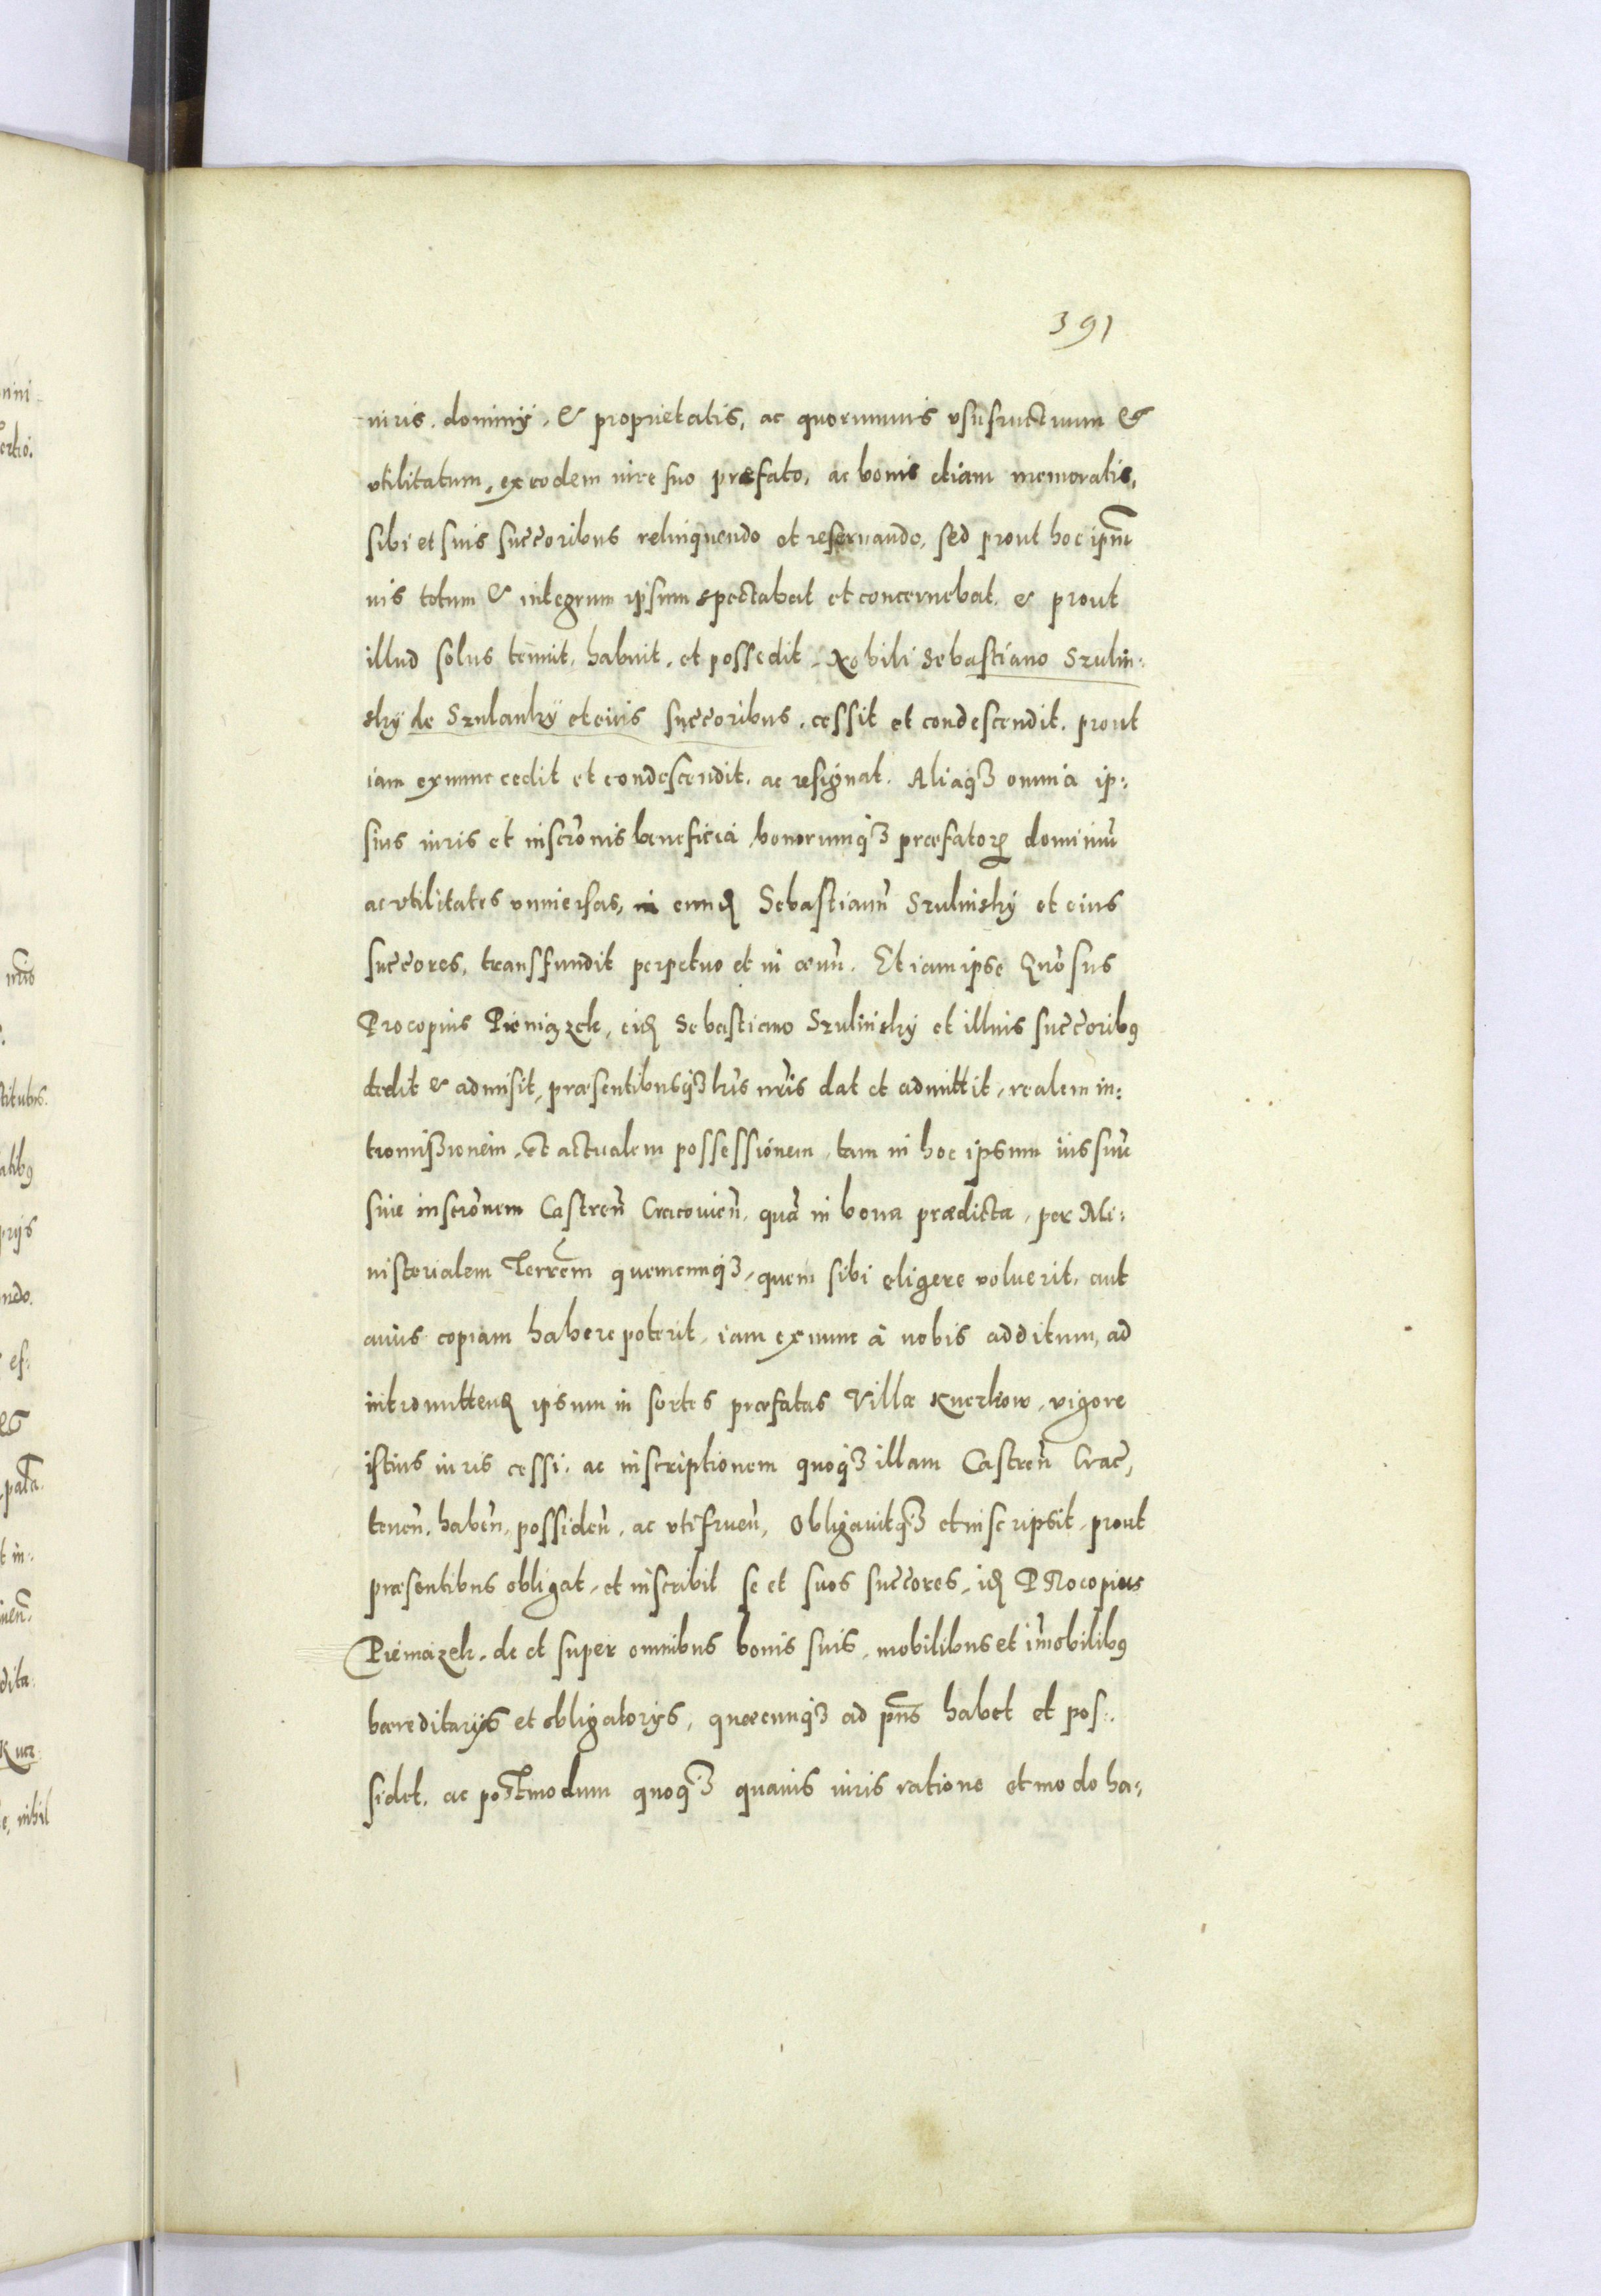 391
iuris. dominÿ, & proprietatis, ac quorumuis vsufructuum &
vtilitatum, ex eodem iure suo præfato, ac bonis etiam memoratis,
sibi et suis succ̃oribus relinquendo et reseruando, sed prout hoc ip̃m
ius totum & integrum ipsum spectabat et concernebat. & prout
illud solus tenuit, habuit, et possedit, Nobili Sebastiano Szulin:
skÿ de Szulankÿ et eius succ̃oribus, cessit et condescendit. prout
iam ex nunc cedit et condescendit. ac resignat. Aliaqȝ omnia ip:
sius iuris et inscr̃onis beneficia, bonorumqȝ præfatorꝝ dominiũ
ac vtilitates vniuersas, in eund̃ Sebastianũ Szulinskÿ et eius
succ̃ores, transfundit perpetuo et in æuũ. Et iam ipse Gñosus
Procopius Pieniązek, eid̃ Sebastiano Szulinskÿ et illius succ̃oribꝰ
dedit & admisit, præsentibusqȝ lr̃is nr̃is dat et admittit, realem in:
tromissionem, et actualem possessionem, tam in hoc ipsum ius suũ
siue inscr̃onem Castreñ Cracouieñ, quã in bona prædicta, per Mi:
nisterialem Terrẽm quemcunqȝ, quem sibi eligere voluerit, aut
cuius copiam habere poterit, iam ex nunc à nobis additum, ad
intromitteñd ipsum in sortes præfatas Villæ Kuerkow, vigore
istius iuris cessi, ac inscriptionem quoqȝ illam Castreñ Crac̃,
teneñ, habeñ, possideñ, ac vtifrueñ, Obligauitqȝ et inscripsit, prout
præsentibus obligat, et inscribit se et suos succ̃ores, id̃ Procopius
Pieniązek, de et super omnibus bonis suis, mobilibus et im̃obilibꝰ
hæreditarÿs et obligatorÿs, quæcunqȝ ad p̃ns habet et pos:
sidet, ac postmodum quoqȝ quauis iuris ratione et modo ha: